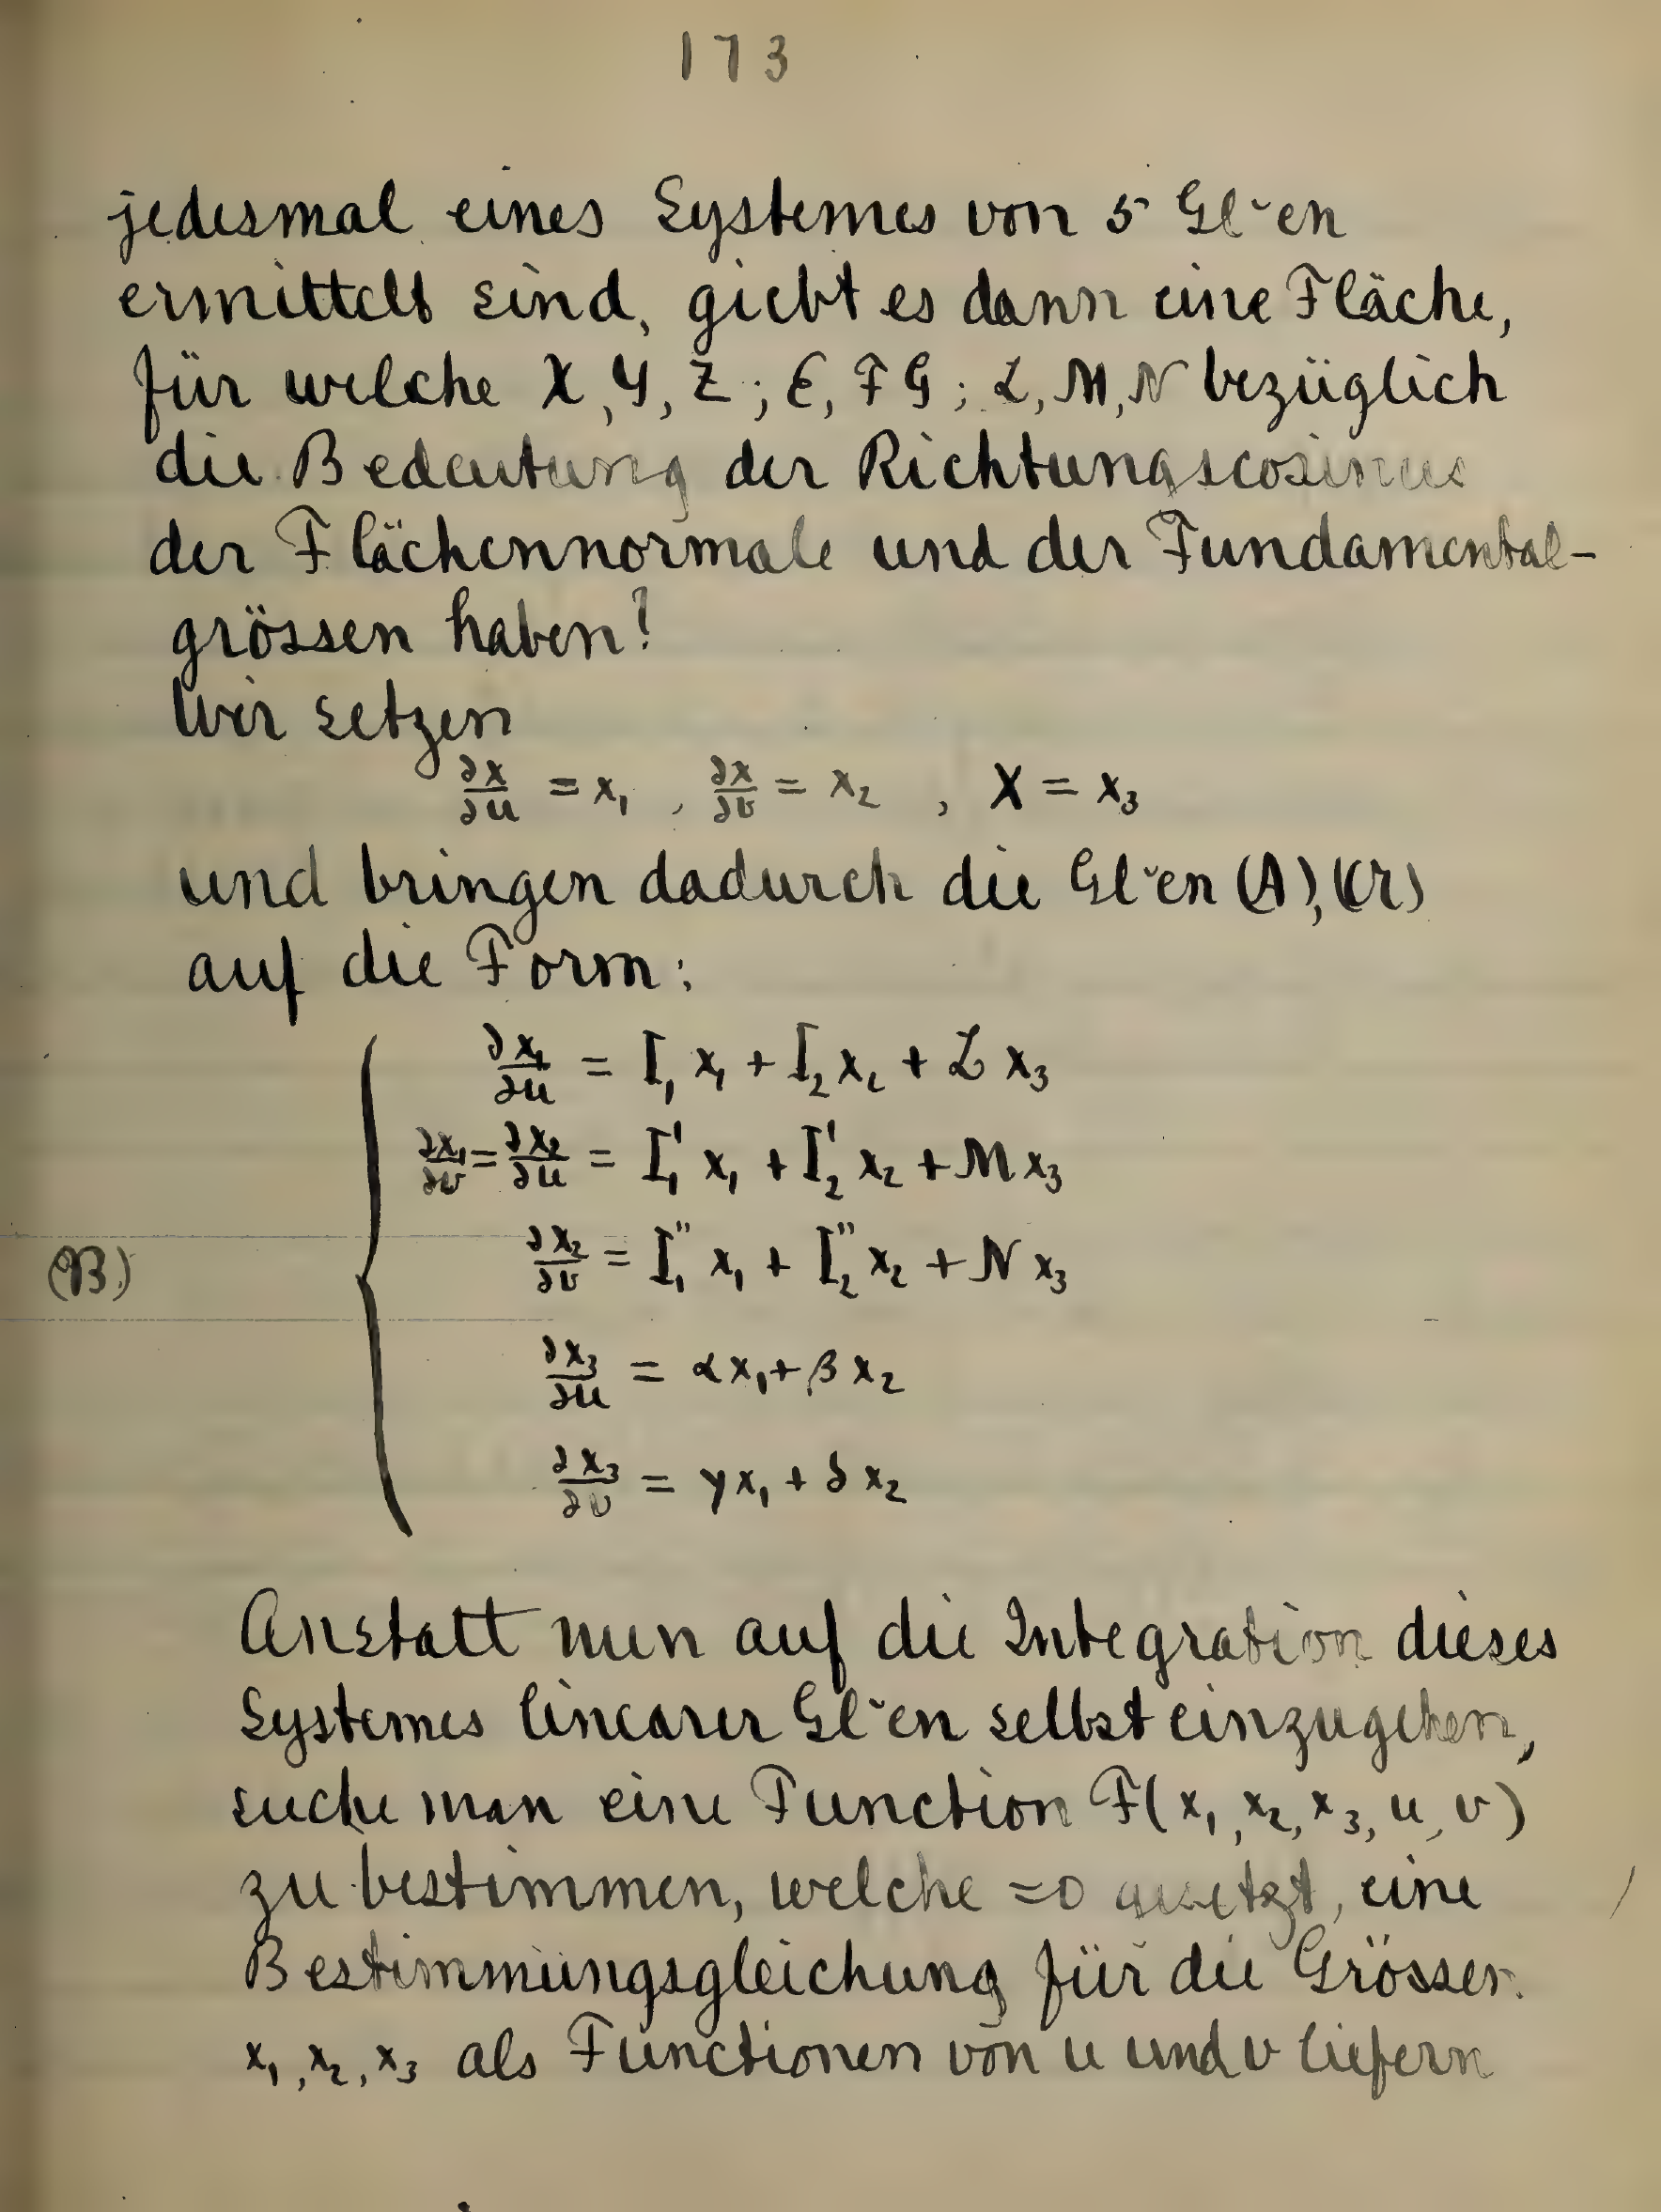 173
jedesmal eines Systemes von 5 Gl˘en
ermittelt sind, giebt es dann eine Fläche,
für welche X, Y, Z; E, F G; L, M, N bezüglich
die Bedeutung der Richtungscosinus
der Flächennormale und der Fundamental-
grössen haben?
Wir setzen
∂x/∂u = x₁, ∂x/∂v = x₂, X = x₃
und bringen dadurch die Gl˘en (A), (Cr)
auf die Form:
∂x₁/∂u = I₁ x₁ + I₂ x₂ + L x₃
∂x₁/∂v = ∂x₂/∂u = I₁' x₁ + I₂' x₂ + M x₃
(B) ∂x₂/∂v = I₁" x₁ + I₂" x₂ + N x₃
∂x₃/∂u = αx₁ + β x₂
∂x₃/∂v = γx₁ + δ x₂
Anstatt nun auf die Integration dieses
Systemes linearer Gl˘en selbst einzugehen,
suche man eine Function F(x₁, x₂, x₃, u, v)
zu bestimmen, welche =0 gesetzt, eine
Bestimmungsgleichung für die Grössen
x₁, x₂, x₃ als Functionen von u und v liefern